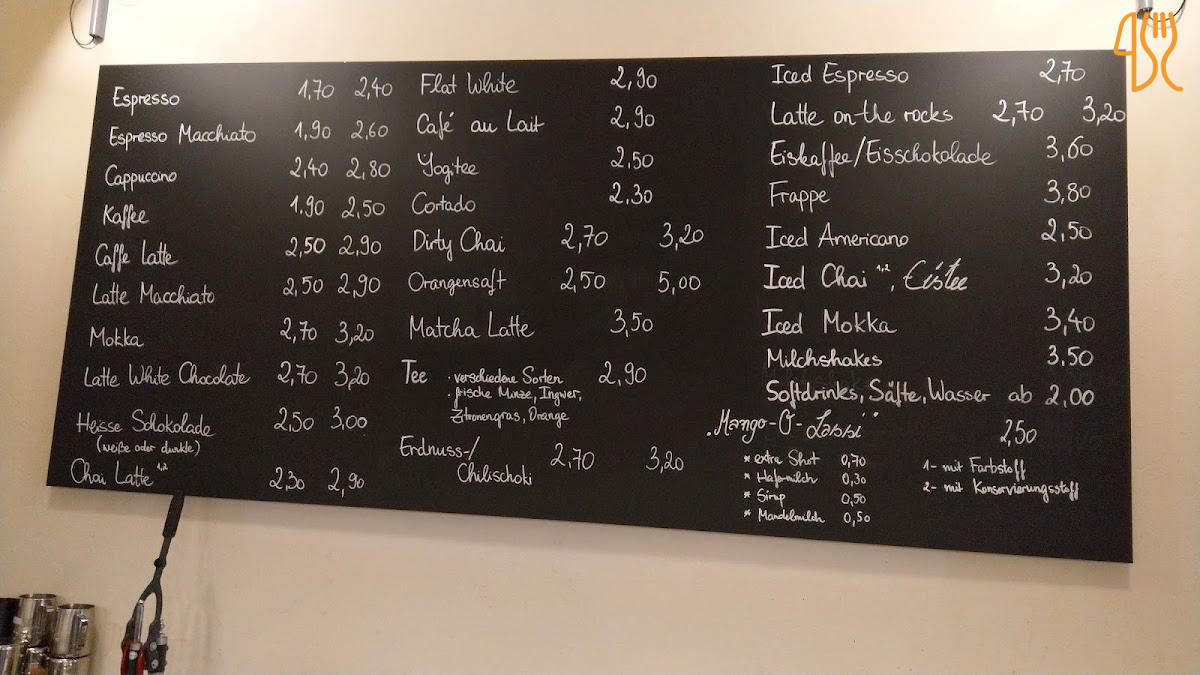 Espresso 1,70 2,40
Espresso Macchiato 1,90 2,60
Cappuccino 2,40 2,80
Kaffee 1,90 2,50
Caffe Latte 2,50 2,90
Latte Macchiato 2,50 2,90
Mokka 2,70 3,20
Latte White Chocolate 2,70 3,20
Heisse Schokolade 2,50 3,00
(weiße oder dunkle)
Chai Latte 1,2 2,30 2,90
Flat White 2,90
Café au Lait 2,90
Yogitee 2,50
Cortado 2,30
Dirty Chai 2,70 3,20
Orangensaft 2,50 5,00
Matcha Latte 3,50
Tee · verschiedene Sorten 2,90
· frische Minze, Ingwer,
Zitronengras, Orange
Erdnuss-/
Chilischoki 2,70 3,20
Iced Espresso 2,70
Latte on the rocks 2,70 3,20
Eiskaffee/Eisschokolade 3,60
Frappe 3,80
Iced Americano 2,50
Iced Chai 1,2, Eistee 3,20
Iced Mokka 3,40
Milchshakes 3,50
Softdrinks, Säfte, Wasser ab 2,00
"Mango-O-Lassi" 2,50
* extra Shot 0,70
* Hafermilch 0,30
* Sirup 0,50
* Mandelmilch 0,50
1- mit Farbstoff
2- mit Konservierungsstoff